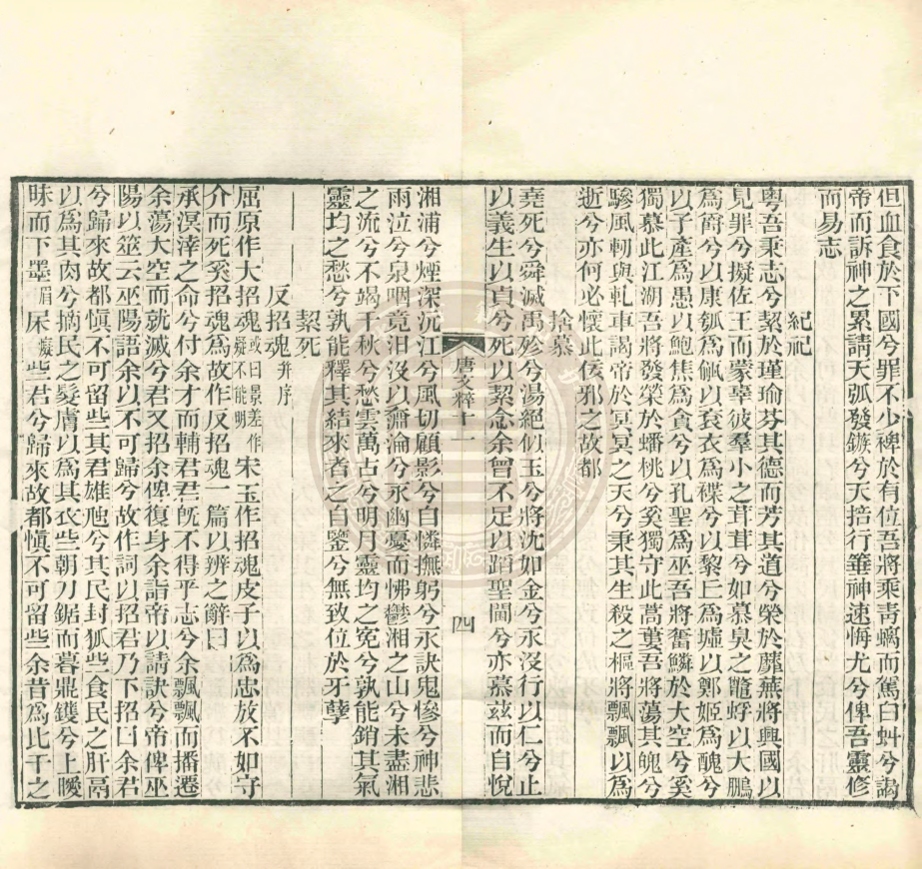 但血食於下國兮罪不少裨於有位吾將乘青螭而駕白虯兮謁
帝而訴神之累請天弧發鏃兮天掊行箠神速悔尤兮俾吾靈修
而易志
紀祀
粵吾秉志兮絜於瑾瑜芬其德而芳其道兮榮於蘼蕪將興國以
見罪兮擬佐王而蒙辜彼羣小之茸茸兮如慕臭之䘉蜉以大鵬
為䳺兮以康瓠為甌以衮衣為褋兮以黎丘為墟以鄭姬為醜兮
以子產為愚以鮑焦為貪兮以孔聖為巫吾將奮鱗於大空兮奚
獨慕此江湖吾將發榮於蟠桃兮奚獨守此蒿蔞吾將蕩其魄兮
驂風軔與軋車謁帝於冥冥之天兮秉其生殺之樞將飄飄以為
逝兮亦何必懷此佞邪之故都
捨慕
堯死兮舜滅禹殄兮湯絕似玉兮將沈如金兮永沒行以仁兮止
以義生以貞兮死以絜念余曾不足以蹈聖閫兮亦慕茲而自悅
唐文粹十二
四
湘浦兮煙深沅江兮風切顧影兮自憐撫躬兮永訣鬼慘兮神悲
雨泣兮泉咽竟汨沒以潚淪兮永幽憂而怫鬱湘之山兮未盡湘
之流兮不竭千秋兮愁雲萬古兮明月靈均之冤兮孰能銷其氣
靈均之愁兮孰能釋其結來者之自鑒兮無致位於牙孽
絜死
反招魂并序
屈原作大招魂或曰景差作疑不能明宋玉作招魂皮子以為忠放不如守
介而死奚招魂為故作反招魂一篇以辨之辭曰
承溟涬之命兮付余才而輔君君旣不得乎志兮余飄飄而播遷
余蕩大空而就滅兮君又招余俾復身余詣帝以請訣兮帝俾巫
陽以筮云巫陽語余以不可歸兮故作詞以招君乃下招曰余君
兮歸來故都慎不可留些其君雄虺兮其民封狐些食民之肝鬲
以為其肉兮摘民之髮膚以為其衣些朝刀鋸而暮鼎鑊兮上曖
昧而下墨眉㞘癡些君兮歸來故都慎不可留些余昔為比干之